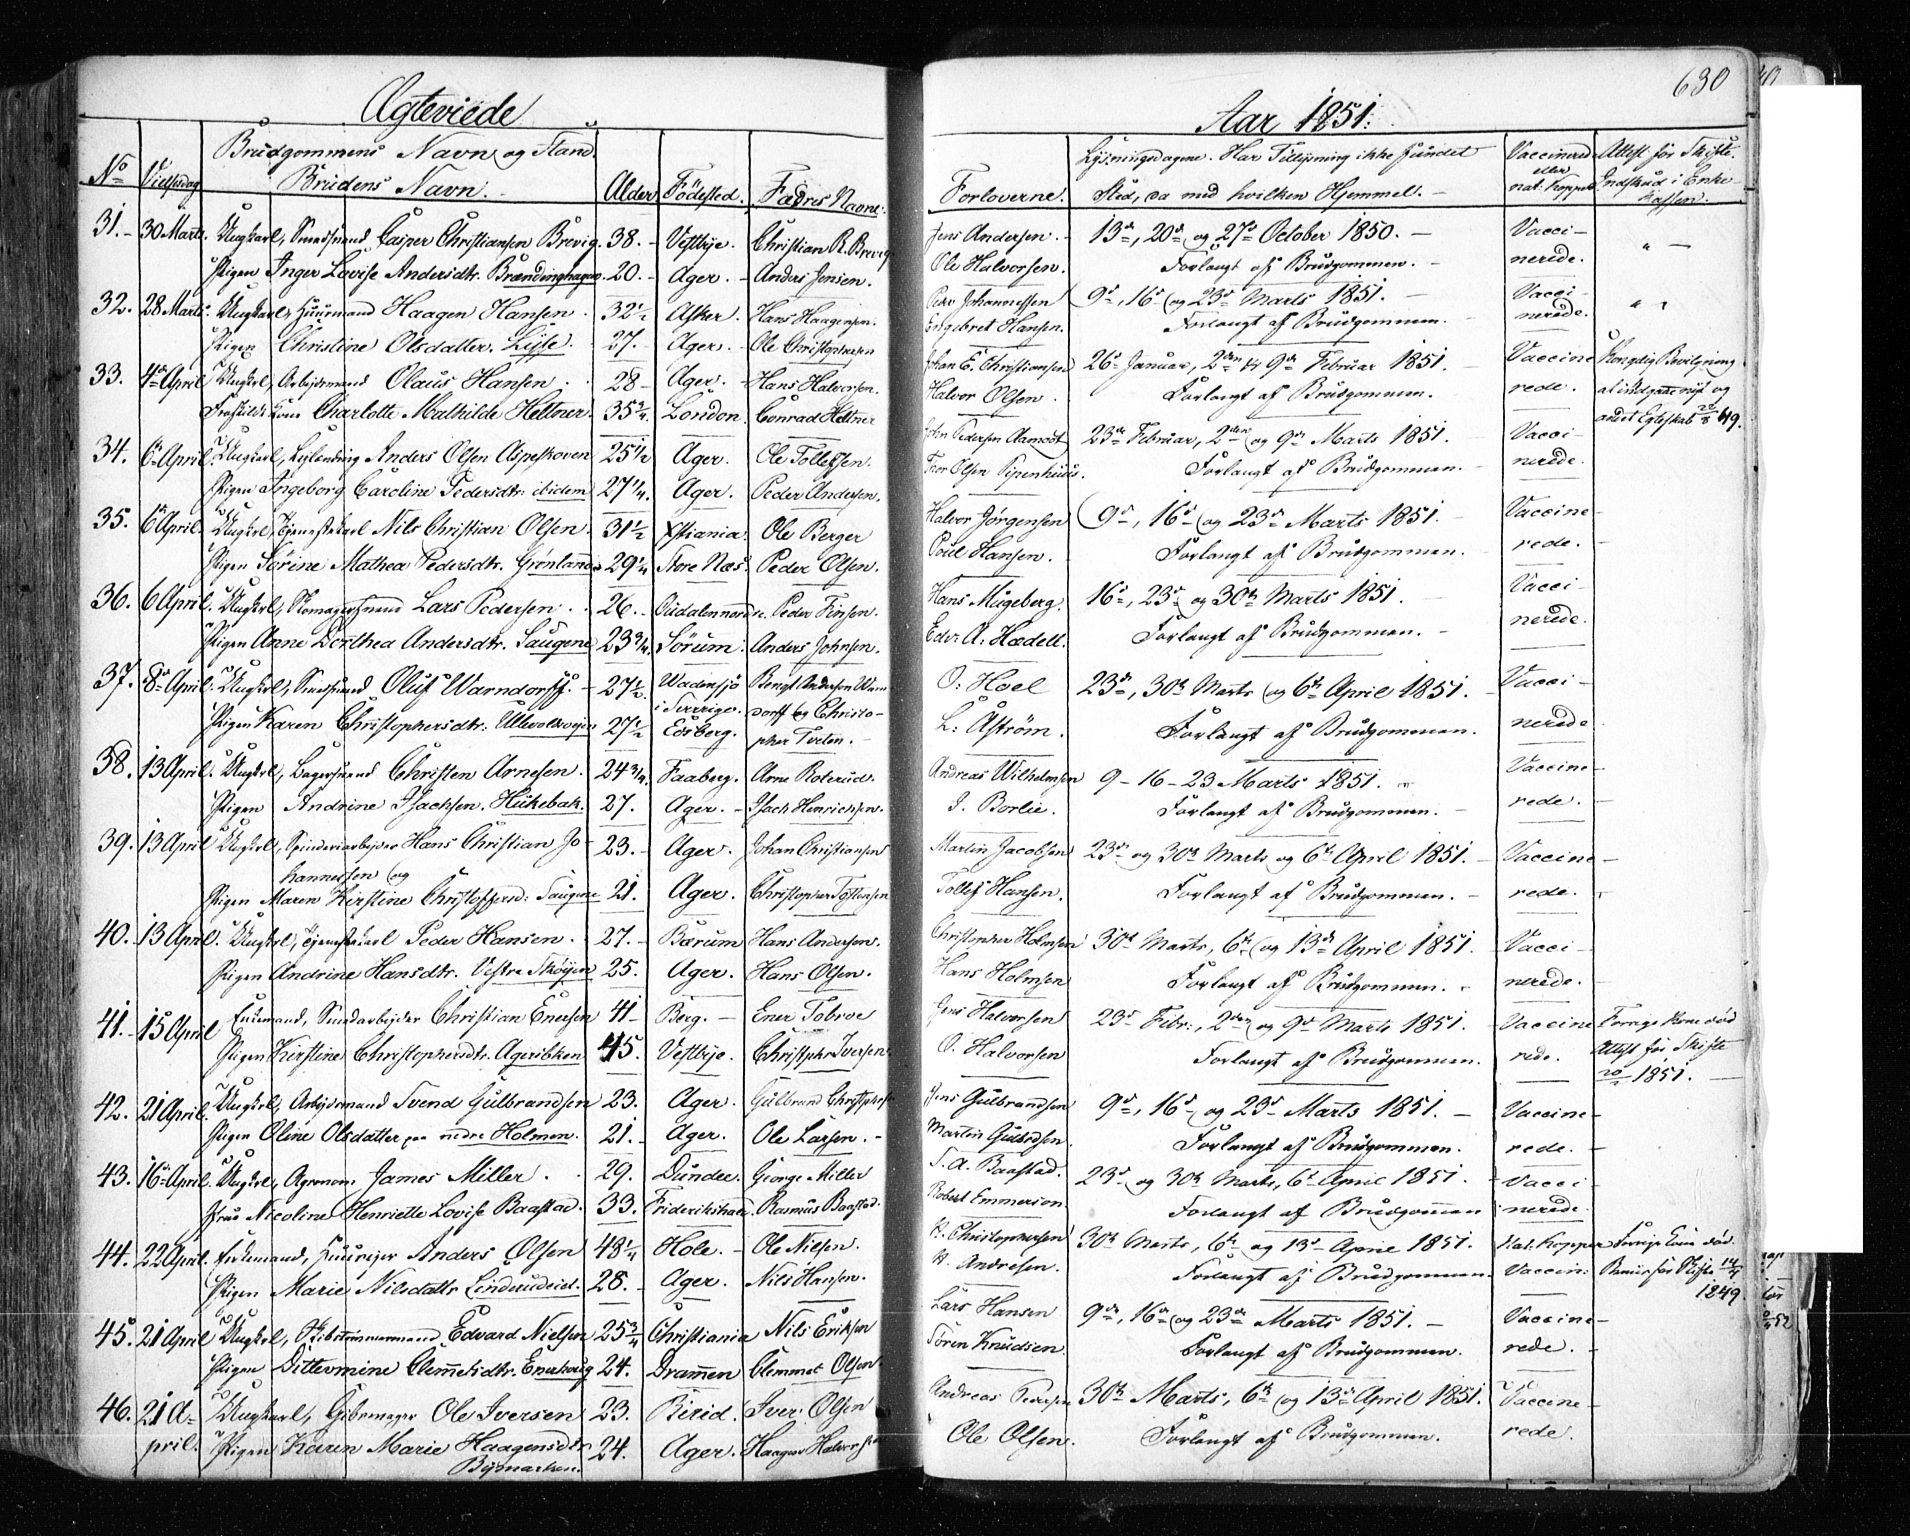 Ægteviede
No
Vielsesdag
Brudgommens Navn og Stand.
Brudens Navn.
Alder
Födested.
Fædres Navne.
31. 30 Marts. Ungkarl, Smedsvend Casper Christiansen Brevig. 38. Vestbye. Christian R. Brevig
Pigen Inger Lovise Andersdtr. Brændinghagen 20. Ager. Anders Jensen.
32. 28 Marts. Ungkarl, Huusmand Haagen Hansen 32½ Asker. Hans Haagensen.
Pigen Christine Olsdatter. Lysse. 27. Ager. Ole Christophersen
33. 4de April Ungkarl, Arbeidsmand Olaus Hansen. 28 Ager. Hans Halvorsen.
Fraskildt Kone Charlotte Mathilde Heltner. 35¾ London. Conrad Heltner
34. 6te April. Ungkarl, Leilending Anders Olsen Aspeskoven 25½ Ager. Ole Tollefsen.
Pigen Ingeborg Caroline Pedersdtr. ibidem 27¼. Ager. Peder Andersen.
35. 6te April. Ungkarl, Tjenestekarl Nils Christian Olsen. 31½ Xstiania. Ole Berger
Pigen Sörine Mathea Pedersdtr. Grönland 29¼ Store Næs. Peder Olsen.
36. 6 April. Ungkarl, Skomagersvend Lars Pedersen. 26. Peder Finsen.
Pigen Anne Dorthea Andersdtr. Saugene 23¾. Sörum. Anders Johnsen.
37. 8de April. Ungkarl, Smedsvend Oluf Warndorff. 27½. Wadensjö i Sverrige. Bengt Andersen Warn
Pigen Karen Christophersdtr. Ullevoldsveien 27½ Edsberg. dorff og Christo-
pher Tveten.
38. 13 April. Ungkarl, Bagersvend Christen Arnesen. 24¾. Faaberg. Arne Roterud.
Pigen Andrine Isachsen. Hukebak. 27. Ager. Isach Henrichsen.
39. 13 April Ungkarl, Spinderiarbeider Hans Christian Jo- 23. Ager. Johan Christiansen
hannessen og
Pigen Maren Kirstine Christoffersd: Saugene 21. Ager. Christopher
40. 13 April. Ungkarl, Tjenestekarl Peder Hansen. 27. Bærum Hans Andersen.
Pigen Andrine Hansdtr. Vestre Skøyen 25. Ager. Hans Olsen.
41. 15 April Enkemand, Smedarbejder Christian Enersen 41 Berg. Ener Tobroe
Pigen Kirstine Christophersdtr. Agersbken 45. Vestbye. Christopher Iversen.
42. 21 April. Ungkarl, Arbejdsmand Svend Gulbrandsen 23. Ager. Gulbrand Christophersen
Pigen Oline Olsdatter paa nedre Holmen. 21. Ager. Ole Larsen.
43. 16de April. Ungkarl, Agronom James Miller. 29. Dundee. George Miller
Frue Nicoline Henriette Lovise Baastad. 33. Friderikshald. Rasmus Baastad.
44. 22 April. Enkemand, Huuseier Anders Olsen 48¼ Hole. Ole Nielsen.
Pigen Marie Nilsdattr Linderudeid. 28. Ager. Nils Hansen.
45. 21 April Ungkarl, Skibstømmermand Edvard Nielsen 25¾ Christiania Nils Eriksen
Pigen Dittevmine Clemetsdtr. Enerhaug 24. Drammen Clemmet Olsen
46. 21 A- Ungkarl, Gibsmager Ole Iversen 23. Birid. Iver Olsen
pril. Pigen Karen Marie Haagensdtr 24. Ager. Haagen Halvorsen
Bymarken.
630
Aar 1851.
Forloverne.
Lysningsdagene. Har Tillysning ikke fundet
Sted, da med hvilken Hjemmel.
Vaccinered
eller
nat. Kopper
Attest for Skifte.
Indskud i Enke-
kassen.
Jens Andersen. 13de, 20de og 27de October 1850. Vacci-
Ole Halvorsen. Forlangt af Brudgommen. nerede. " —
Peder Johannessen 9de, 16de og 23de Marts 1851. Vacci-
Engebret Hansen. Forlangt af Brudgommen. nerede. " "
Johan E. Christiansen 26de Januar, 2den og 9de Februar 1851. Vaccine Kongelig Bevilgning
Halvor Olsen. Forlangt af Brudgommen. rede. at indgaae nyt og
andet Egteskab 20/8 49.
John Pedersen Aamodt 23de Februar, 2den og 9de Marts 1851. Vacci-
Thor Olsen Pipenhuus. Forlangt af Brudgommen. nerede.
Halvor Jørgensen 9de, 16de og 23de Marts 1851. Vaccine-
Poul Hansen. Forlangt af Brudgommen. rede.
Hans Mugeberg. 16de, 23de og 30te Marts 1851. Vacci-
Edv. A. Hædell. Forlangt af Brudgommen. nerede.
O. Hoel 23de, 30te Marts og 6te April 1851. Vacci-
L. Åström. Forlangt af Brudgommen. nerede
Andreas Wilhelmsen 9 - 16 - 23 Marts 1851. Vaccine-
I. Borlie. Forlangt af Brudgommen. rede.
Martin Jacobsen 23de og 30te Marts og 6te April 1851. Vaccine
Tollef Hansen. Forlangt af Brudgommen. rede.
Christopher Holmsen 30te Marts, 6te og 13de April 1851. Vacci-
Hans Holmsen Forlangt af Brudgommen. nerede.
Jens Halvorsen 23de Febr., 2den og 9de Marts 1851. Vaccine Forrige Kone död
O. Halvorsen Forlangt af Brudgommen. rede. Attest for Skifte
1851.
Jens Gulbrandsen 9de, 16de og 23de Marts 1851. Vaccine-
Martin Gulbrdsen. Forlangt af Brudgommen. rede.
S. A. Baastad. 23de og 30te Marts, 6te April 1851. Vacci
Robert Emmerson Forlangt af Brudgommen nerede.
K. Christophersen 30te Marts, 6te og 13de April 1851. Nat. Kopper Forrige Kone död.
H. Andresen. Forlangt af Brudgommen. Vaccin: Beviis for Skifte 14/4
1849
Lars Hansen 9de, 16de og 23de Marts 1851. Vaccine-
Sören Knudsen. Forlangt af Brudgommen. rede.
Andreas Pedersen 30te Marts, 6te og 13de April 1851. Vaccine-
Ole Olsen. Forlangt af Brudgommen. rede.